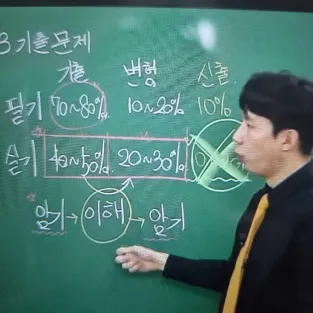 3 기출문제
기출 변형 신출
필기 70~80% 10~20% 10%
실기 40~50% 20~30%
암기 → 이해 → 암기